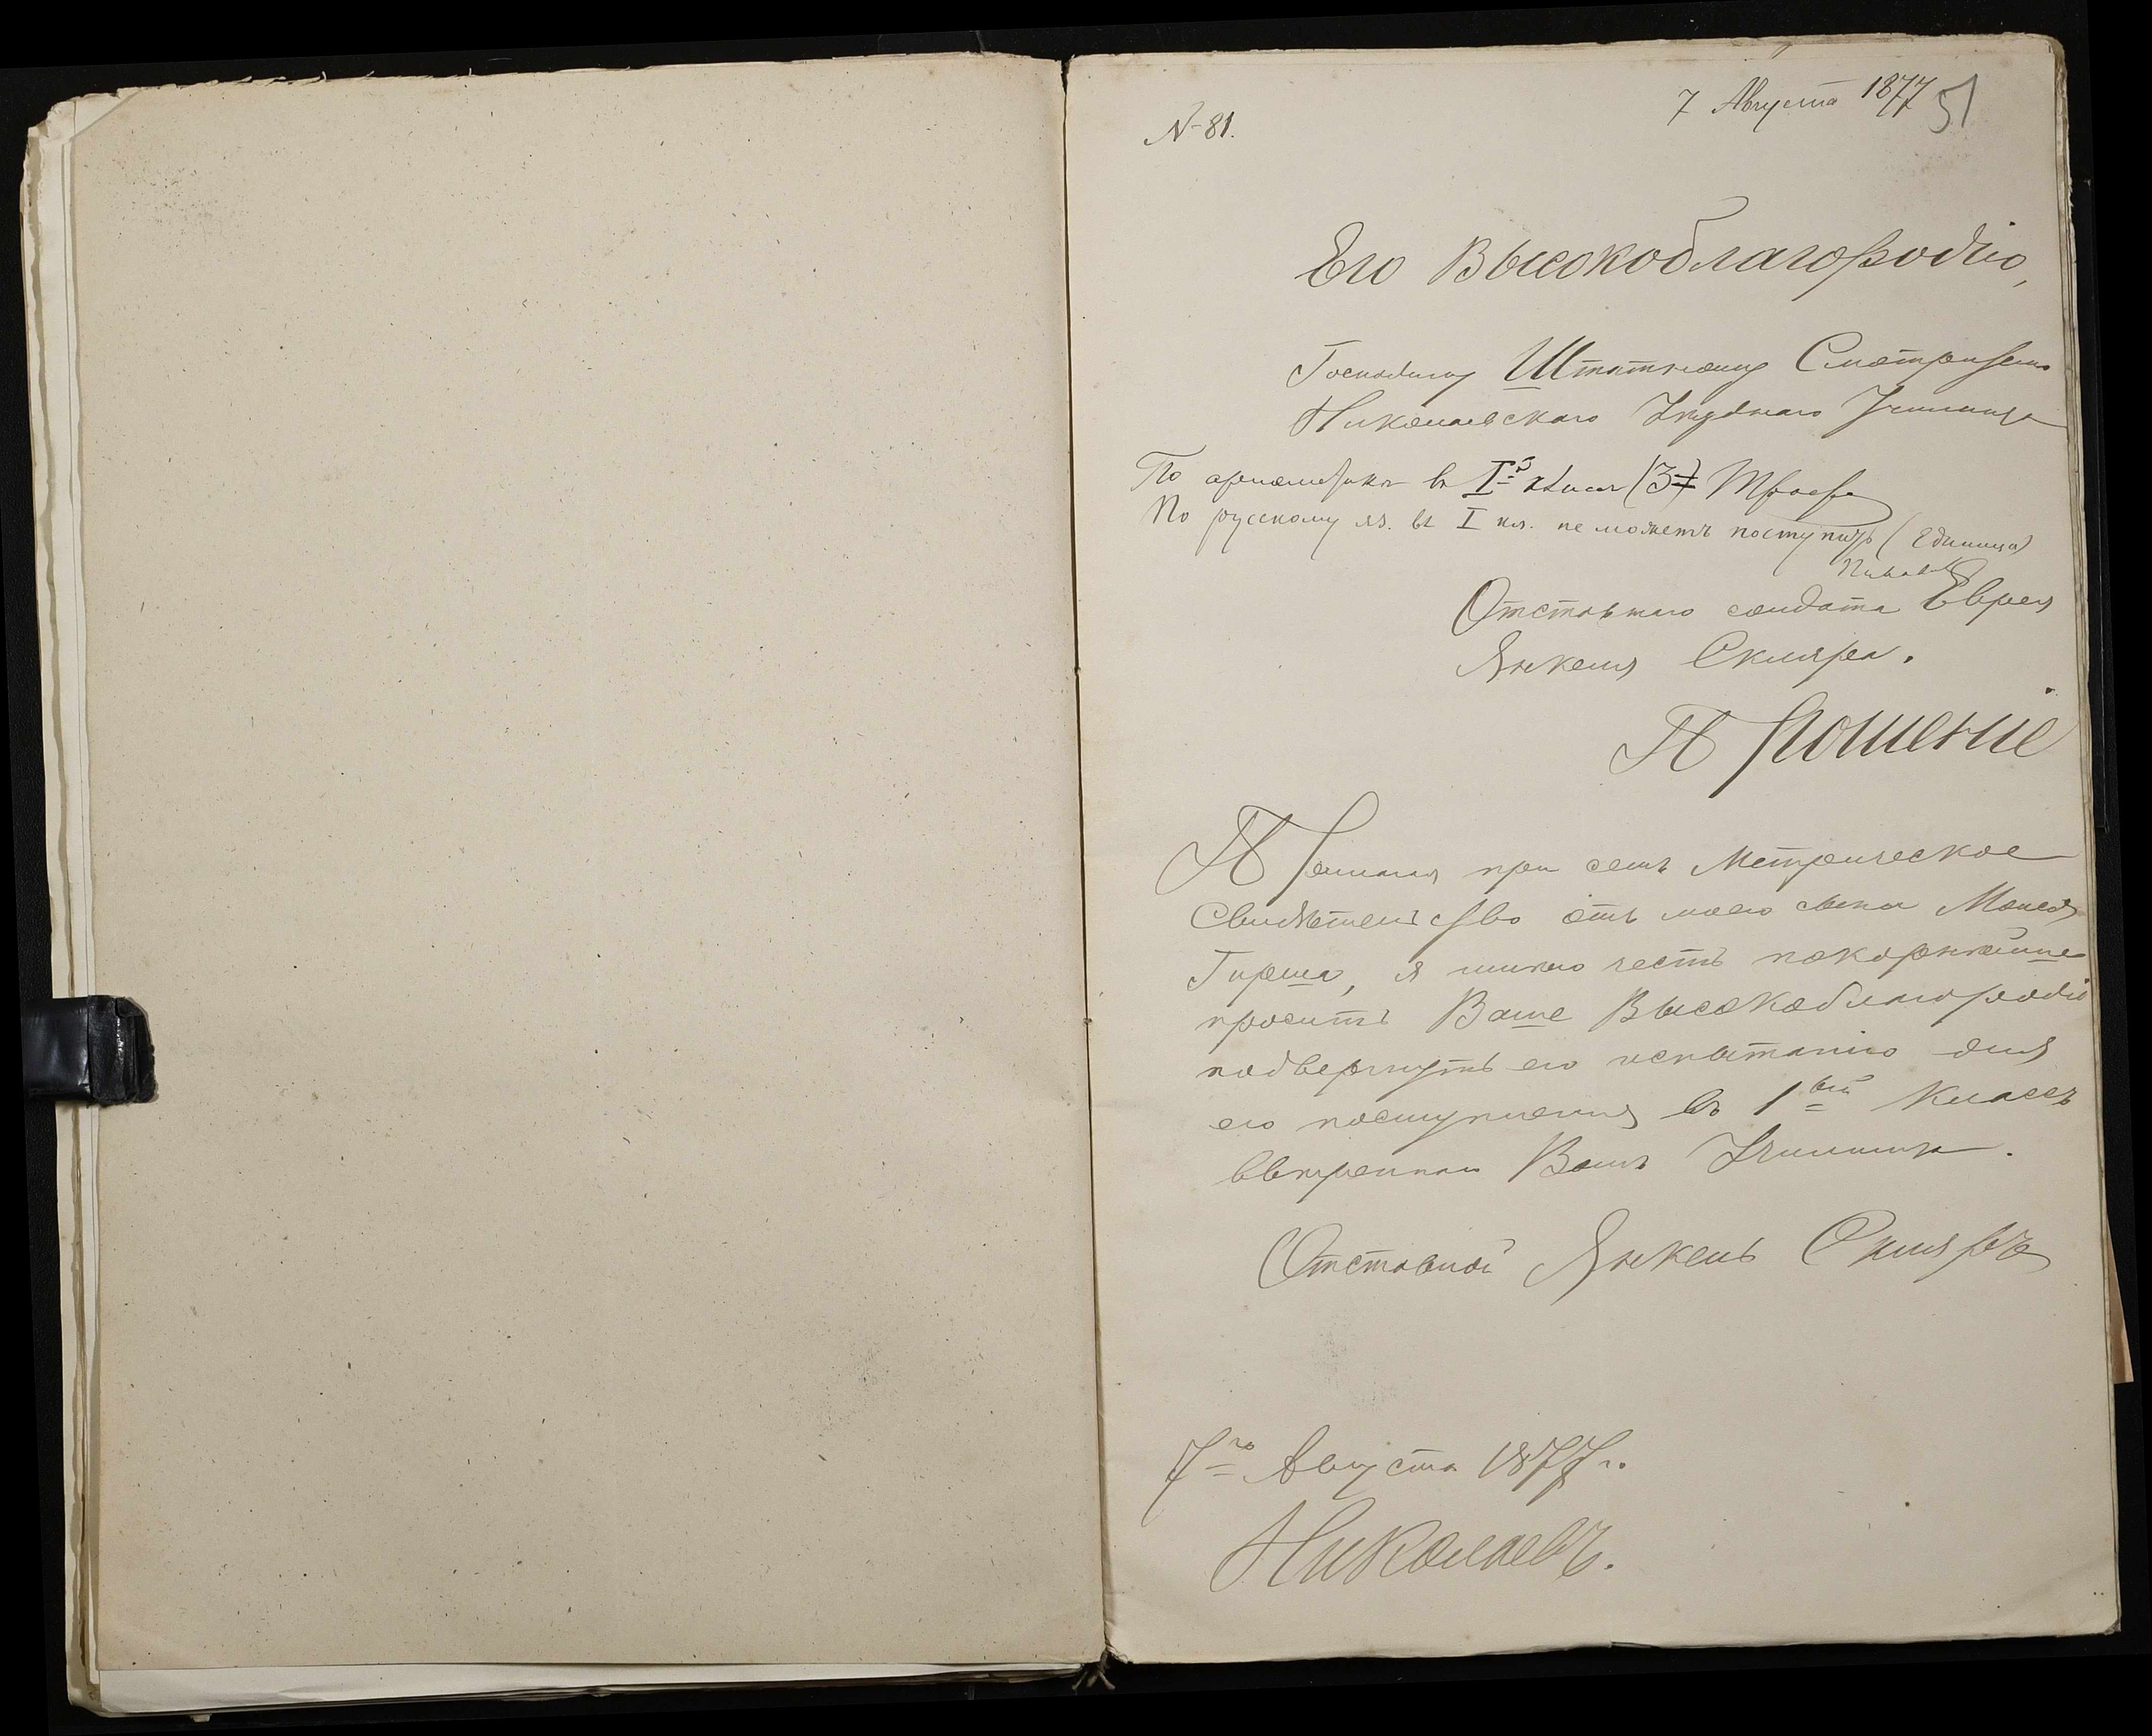 7 Августа 1877 51
№ 81.
Его Высокоблагородію,
Господину Штатному Смотрителю
Николаевскаго Уѣзднаго Училища
По ариѳметикѣ въ I-й классъ (3)
По русскому яз. въ I кл. не можетъ поступить (единица)
Отставнаго солдата Еврея
Янкеля Скляра.
Прошеніе
Прилагая при семъ Метрическое
Свидѣтельство отъ моего сына
Гирша, я имѣю честь покорнѣйше
просить Ваше Высокоблагородіе
подвергнуть его испытанію для
его поступленія въ 1вый Классъ
ввѣреннаго Вамъ Училища.
Отставной Янкель Скляръ
7го Августа 1877 г.
Николаевъ.